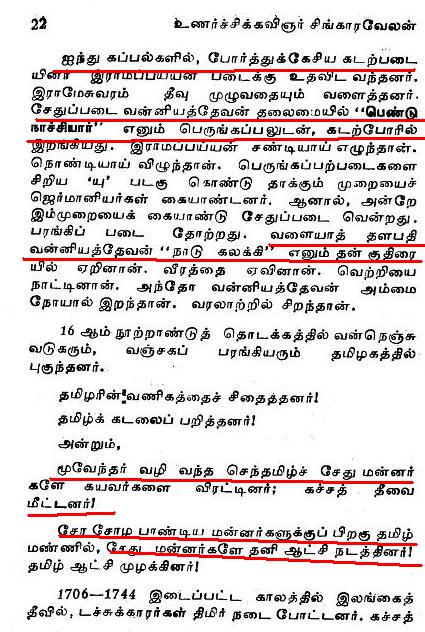 22 உணர்ச்சிக்கவிஞர் சிங்காரவேலன்
ஐந்து கப்பல்களில், போர்த்துக்கேசிய கடற்படை
யினர் இராமப்பய்யன் படைக்கு உதவிட வந்தனர்.
இராமேசுவரம் தீவு முழுவதையும் வளைத்தனர்.
சேதுப்படை வன்னியத்தேவன் தலைமையில் "பெண்டு
நாச்சியார்" எனும் பெருங்கப்பலுடன், கடற்போரில்
இறங்கியது. இராமப்பய்யன் சண்டியாய் எழுந்தான்.
நொண்டியாய் விழுந்தான். பெருங்கப்பற்படைகளை
சிறிய 'யு' படகு கொண்டு தாக்கும் முறையைச்
ஜெர்மானியர்கள் கையாண்டனர். ஆனால், அன்றே
இம்முறையைக் கையாண்டு சேதுப்படை வென்றது.
பரங்கிப் படை தோற்றது. வளையாத் தளபதி
வன்னியத்தேவன் "நாடு கலக்கி" எனும் தன் குதிரை
யில் ஏறினான். வீரத்தை ஏவினான். வெற்றியை
நாட்டினான். அந்தோ வன்னியத்தேவன் அம்மை
நோயால் இறந்தான். வரலாற்றில் சிறந்தான்.
16 ஆம் நூற்றாண்டுத் தொடக்கத்தில் வன்நெஞ்சு
வடுகரும், வஞ்சகப் பரங்கியரும் தமிழகத்தில்
புகுந்தனர்.
தமிழரின் வணிகத்தைச் சிதைத்தனர்!
தமிழ்க் கடலைப் பறித்தனர்!
அன்றும்,
மூவேந்தர் வழி வந்த செந்தமிழ்ச் சேது மன்னர்
களே கயவர்களை விரட்டினர்; கச்சத் தீவை
மீட்டனர்!
சேர சோழ பாண்டிய மன்னர்களுக்குப் பிறகு தமிழ்
மண்ணில், சேது மன்னர்களே தனி ஆட்சி நடத்தினர்!
தமிழ் ஆட்சி முழக்கினர்!
1706-1744 இடைப்பட்ட காலத்தில் இலங்கைத்
தீவில், டச்சுக்காரர்கள் திமிர் நடை போட்டனர். கச்சத்